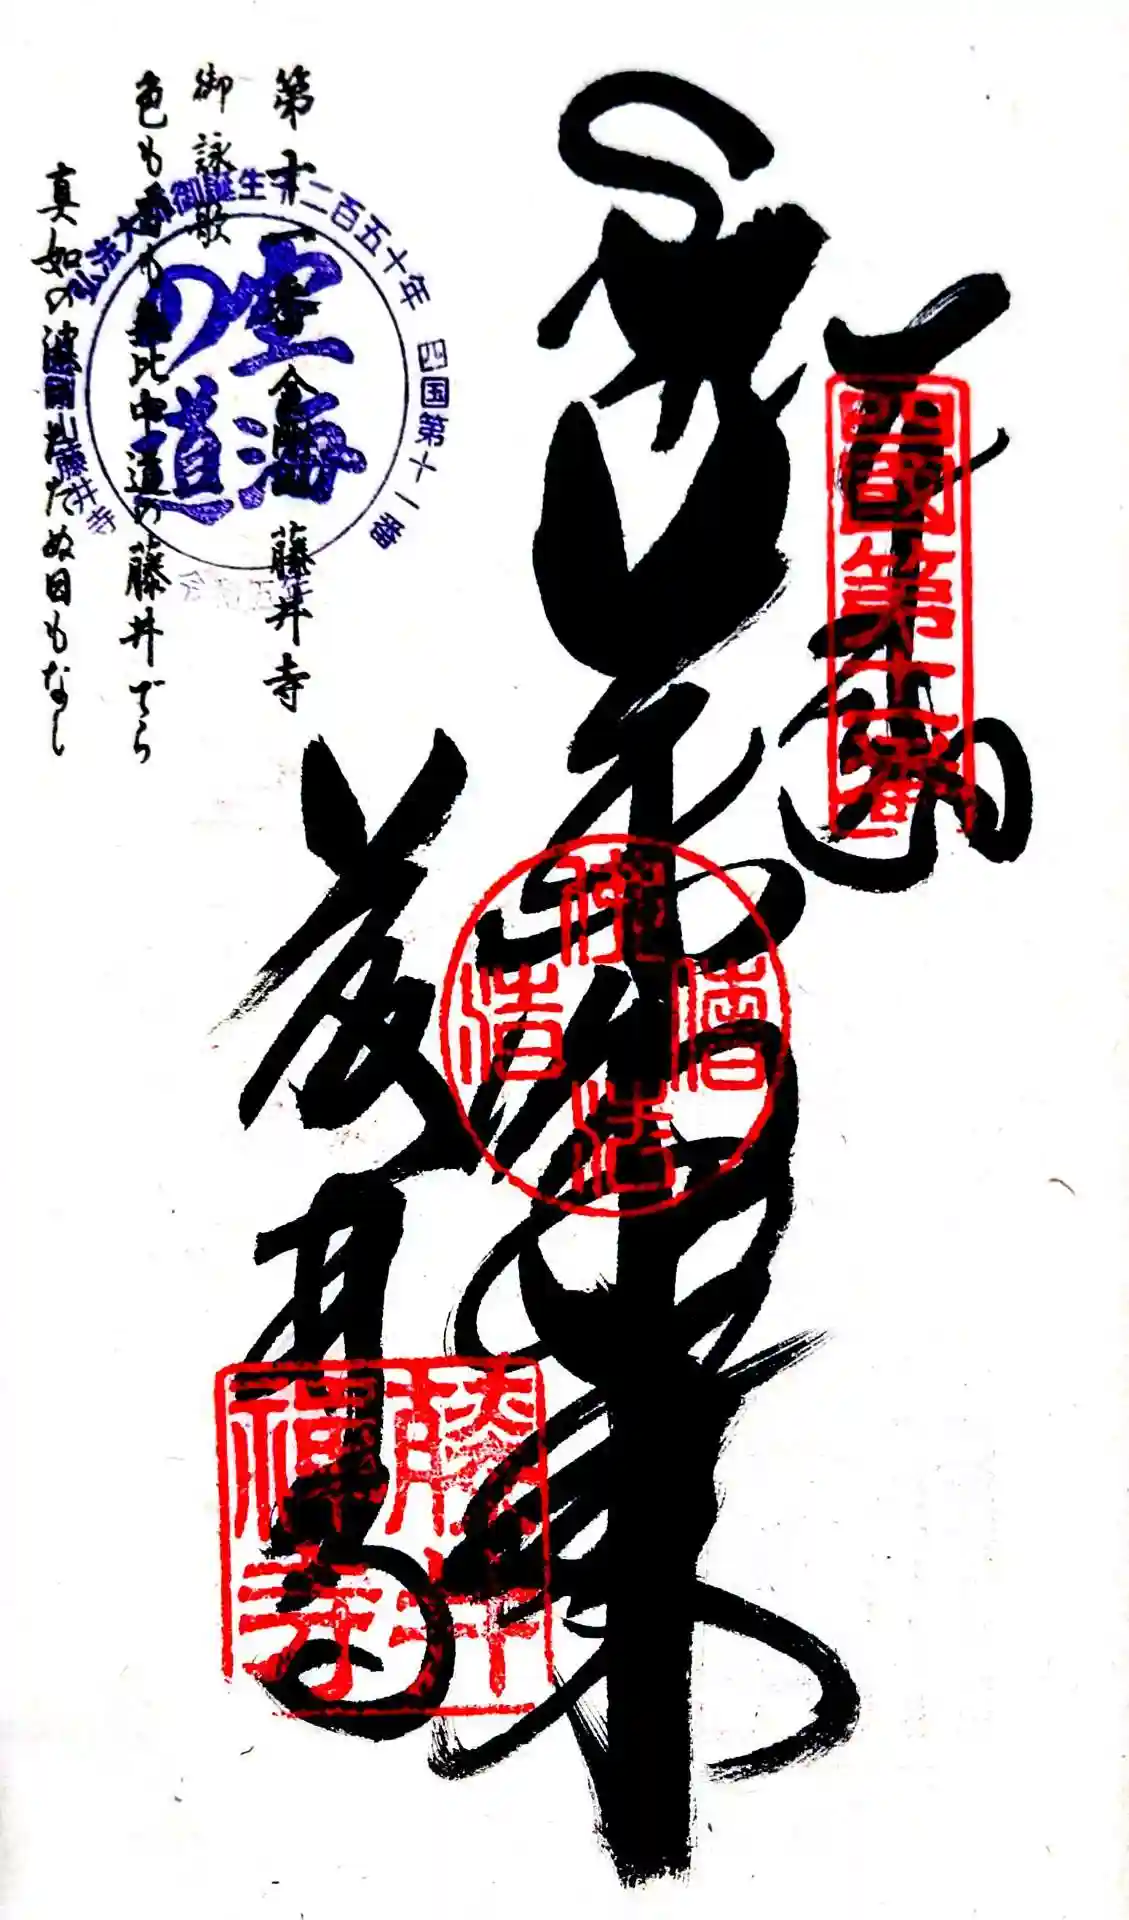 奉納
四國第十一番
薬師如来
藤井寺
藤井禅寺
第十一番 金剛山 藤井寺
御詠歌
色も香も無比中道の藤井でら
真如の波のたたぬ日もなし
弘法大師御誕生千二百五十年 四国第十一番
空海の道
藤井寺